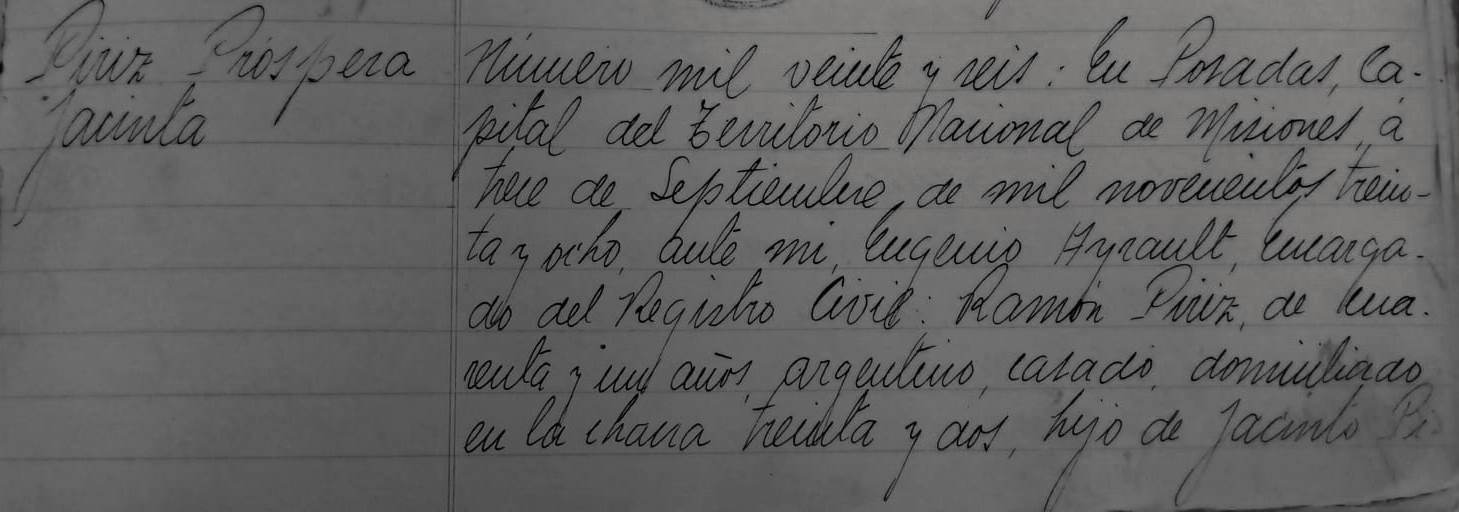 Piriz Próspera
Jacinta
Número mil veinte y seis: En Posadas, Ca-
pital del Territorio Nacional de Misiones, á
trece de Septiembre de mil novecientos trein-
ta y ocho, ante mi, Eugenio Ayrault, Encarga-
do del Registro Civil: Ramón Piriz, de cua-
renta y un años, argentino, casado, domiciliado
en la chacra treinta y dos, hijo de Jacinto Pi-